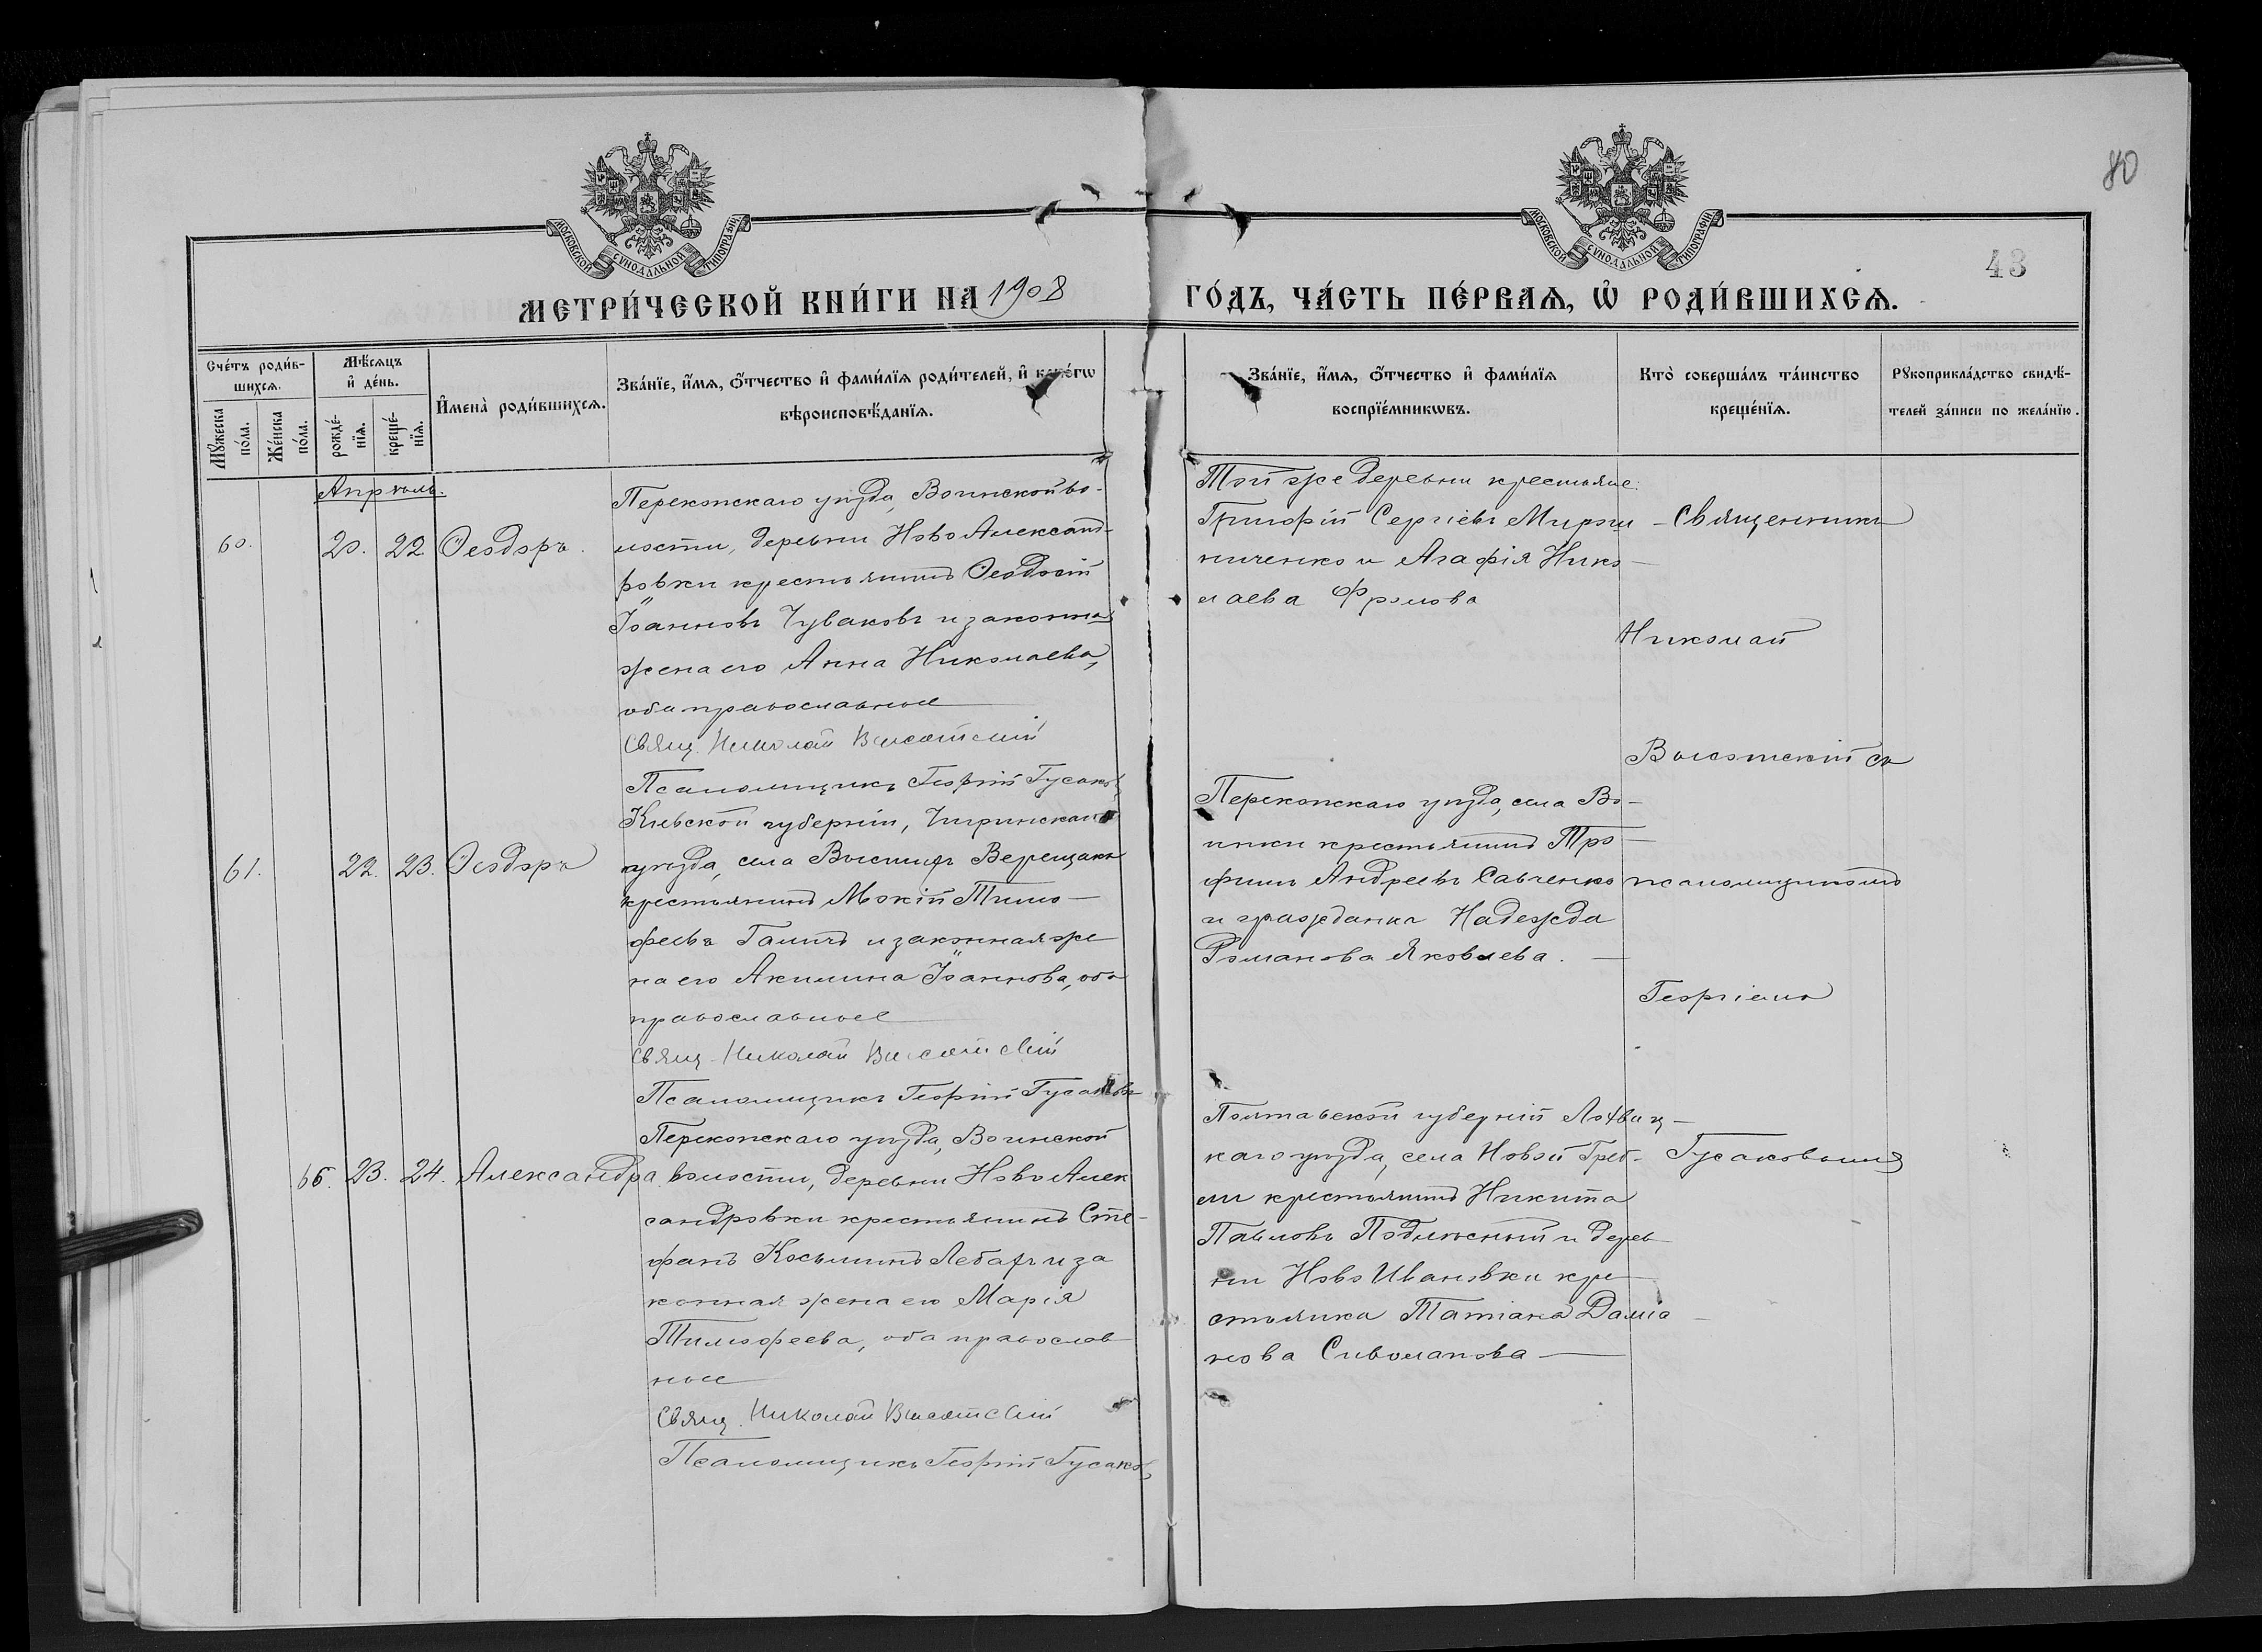 80
43
МОСКОВСКОЙ СѴНОДАЛЬНОЙ ТИПОГРАФІИ
МОСКОВСКОЙ СѴНОДАЛЬНОЙ ТИПОГРАФІИ
МЕТРИ́ЧЕСКОЙ КНИ́ГИ НА 1908
ГО́ДЪ, ЧА́СТЬ ПЕ́РВАѦ, Ѡ҆ РОДИ́ВШИХСѦ.
Сче́тъ роди́в-
шихсѧ.
Мꙋ́жеска по́ла.
Же́нска по́ла.
Мѣ́сѧцъ
и҆ де́нь.
рожде́-
нїѧ.
креще́-
нїѧ.
И҆мена̀ роди́вшихсѧ.
Зва́нїе, и҆́мѧ, ѻ҆́тчество и҆ фами́лїѧ роди́телей, и҆ како́гѡ
вѣроисповѣ́данїѧ.
Зва́нїе, и҆́мѧ, ѻ҆́тчество и҆ фами́лїѧ
воспрїе́мникѡвъ.
Кто̀ соверша́лъ та́инство
креще́нїѧ.
Рꙋкоприкла́дство свидѣ́-
телей за́писи по жела́нїю.
Апрѣль.
60. 20. 22 Ѳеодоръ.
Перекопскаго уѣзда, Воинской во-
лости, деревни Ново Александ-
ровки крестьянинъ Ѳеодосій
Іоанновъ Чуваковъ и законная
жена его Анна Николаева,
оба православные
Свящ. Николай Высотскій
Псаломщикъ Георгій Гусаковъ
Той же деревни крестьяне:
Григорій Сергіевъ Мирош-
ниченко и Агафія Нико-
лаева Фролова
Священникъ
Николай
Высотскій съ
псаломщикомъ
Георгіемъ
Гусаковымъ
61. 22. 23. Ѳеодоръ
Кіевской губерніи, Чигринскаго
уѣзда, села Высшихъ Верещакъ
крестьянинъ Мокій Тимо-
феевъ Галичъ и законная же
на его Акилина Іоаннова, оба
православные
Свящ. Николай Высотскій
Псаломщикъ Георгій Гусаковъ
Перекопскаго уѣзда, села Во-
инки крестьянинъ Тро-
фимъ Андреевъ Савченко
и гражданка Надежда
Романова Яковлева.
66. 23. 24. Александра
Перекопскаго уѣзда, Воинской
волости, деревни Ново Алек
сандровки крестьянинъ Сте-
фанъ Косьминъ Лебедь и за
конная жена его Марія
Тимофеева, оба православ
ные
Свящ. Николай Высотскій
Псаломщикъ Георгій Гусаковъ
Полтавской губерній Лохвиц-
каго уѣзда, села Новой Греб-
ли крестьянинъ Никита
Павловъ Подлѣсный и дерев-
ни Ново Ивановки кре-
стьянка Татіана Даміа-
нова Сиволапова